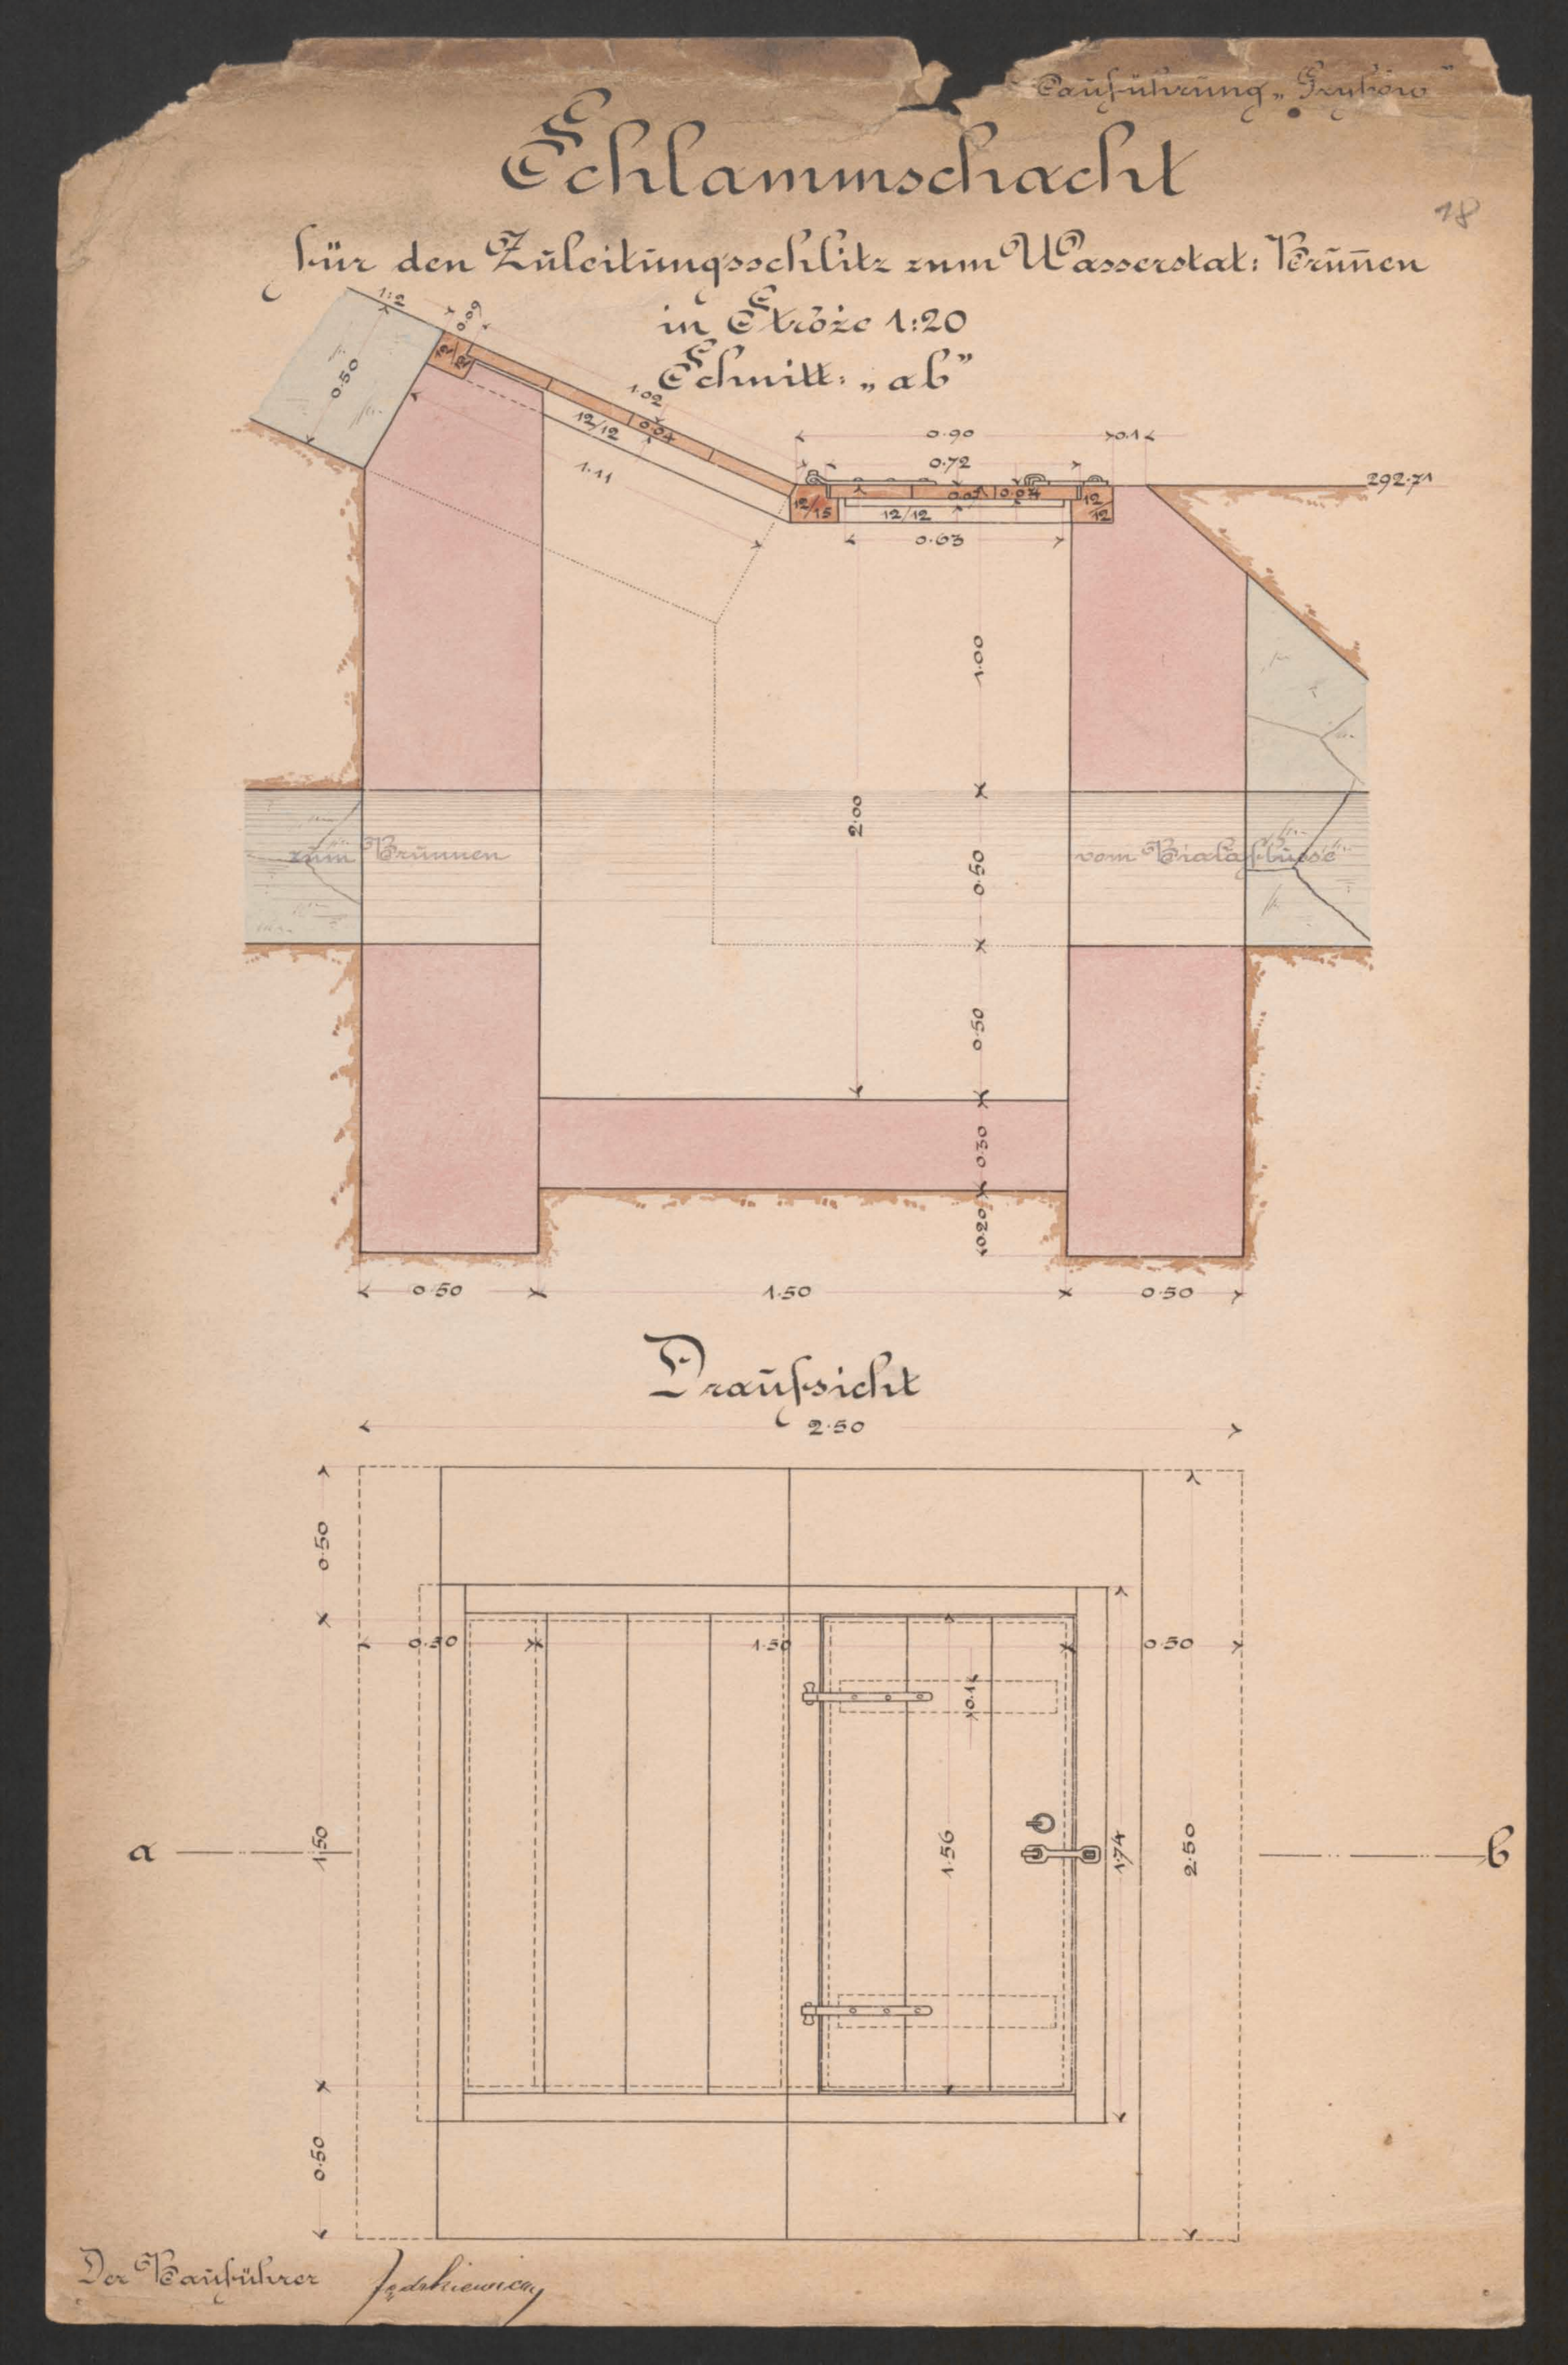 Bauführung „Grybów"
Schlammschacht
18
für den Zuleitungsschlitz zum Wasserstat: Brun̄en
in Stróże 1:20
Schnitt: „ab"
1:2
0·09
0·50
12/12
1·02
12/12
0·04
1·11
0·90
0·1
0·72
292·71
12/15
0·04
12/12
12/12
0·63
1·00
2·00
0·50
zum Brunnen
vom Bialaflusse
0·50
0·30
0·20
0·50
1·50
0·50
Draufsicht
2·50
0·50
0·50
1·50
0·50
0·1
a
1·50
1·56
1·74
2·50
b
0·50
Der Bauführer